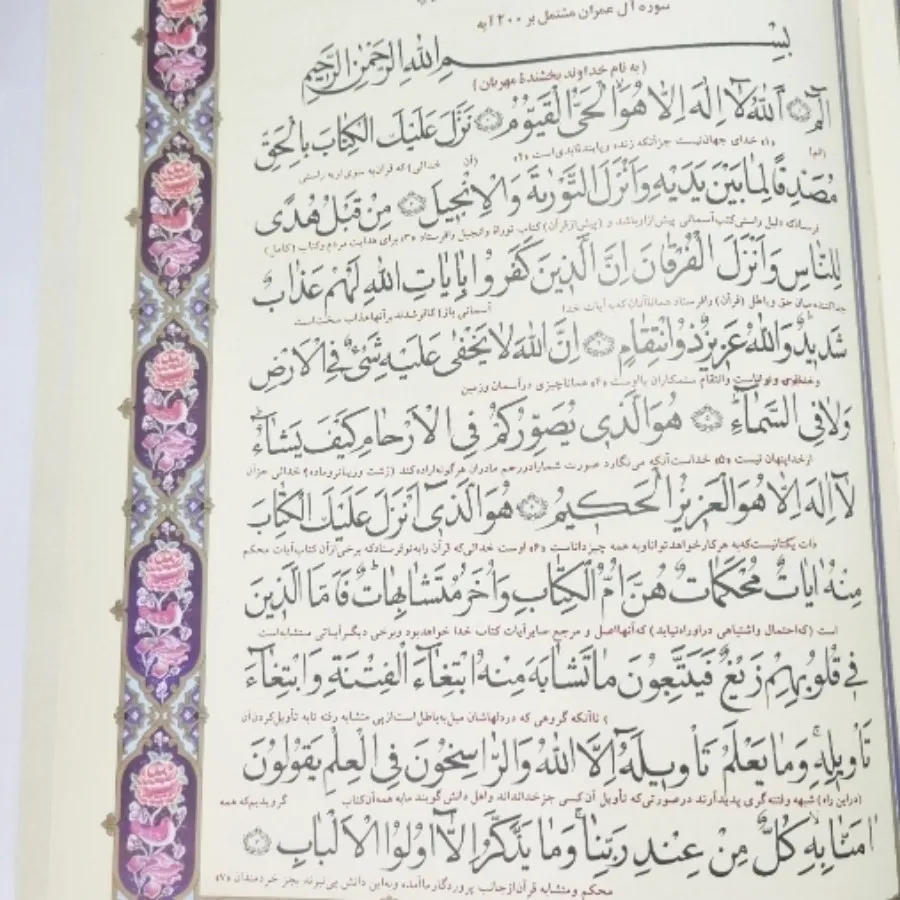 سوره آل عمران مشتمل بر ۲۰۰ آیه
بِسْمِ اللهِ الرَّحْمٰنِ الرَّحیمِ
(به نام خداوند بخشندهٔ مهربان)
الٓمٓ ۱ اَللهُ لاٰ اِلٰهَ اِلاّٰ هُوَ الْحَیُّ الْقَیُّومُ ۲ نَزَّلَ عَلَیْكَ الْكِتٰابَ بِالْحَقِّ
(الم) «۱» خدای جهان نیست جز آنکه زنده و پاینده ابدی است «۲» (آن خدائی) که قرآن به سوی تو به راستی
مُصَدِّقاً لِمٰا بَیْنَ یَدَیْهِ وَاَنْزَلَ التَّوْرٰیةَ وَالْاِنْجیلَ ۳ مِنْ قَبْلُ هُدًی
فرستاد که دلیل راستی کتب آسمانی پیش از او باشد و (پیش از قرآن) کتاب تورات و انجیل را فرستاد «۳» برای هدایت مردم و کتاب (کامل)
لِلنّٰاسِ وَاَنْزَلَ الْفُرْقٰانَ اِنَّ الَّذینَ كَفَرُوا بِاٰیٰاتِ اللهِ لَهُمْ عَذٰابٌ
جداکننده میان حق و باطل (قرآن) را فرستاد همانا آنان که به آیات خدا آسمانی باز) کافر شدند بر آنها عذاب سخت است
شَدیدٌ وَاللهُ عَزیزٌ ذُو انْتِقٰامٍ ۴ اِنَّ اللهَ لاٰ یَخْفیٰ عَلَیْهِ شَیْءٌ فِی الْاَرْضِ
و خدا قوی و توانا است و انتقام ستمکاران با اوست «۴» همانا چیزی در آسمان و زمین
وَلاٰ فِی السَّمٰاءِ ۵ هُوَ الَّذی یُصَوِّرُكُمْ فِی الْاَرْحٰامِ كَیْفَ یَشٰاءُ
از خدا پنهان نیست «۵» خداست آنکه می نگارد صورت شما را در رحم مادران هرگونه اراده کند (زشت و زیبا نر و ماده) خدائی جز آن
لاٰ اِلٰهَ اِلاّٰ هُوَ الْعَزیزُ الْحَكیمُ ۶ هُوَ الَّذی اَنْزَلَ عَلَیْكَ الْكِتٰابَ
ذات یکتا نیست که به هر کار خواهد توانا و به همه چیز داناست «۶» اوست خدائی که قرآن را به تو فرستاد که برخی از آن کتاب آیات محکم
مِنْهُ اٰیٰاتٌ مُحْكَمٰاتٌ هُنَّ اُمُّ الْكِتٰابِ وَاُخَرُ مُتَشٰابِهٰاتٌ فَاَمَّا الَّذینَ
است (که احتمال و اشتباهی در او راه نیابد) که آنها اصل و مرجع سایر آیات کتاب خدا خواهد بود و برخی دیگر آیاتی متشابه است
فی قُلُوبِهِمْ زَیْغٌ فَیَتَّبِعُونَ مٰا تَشٰابَهَ مِنْهُ ابْتِغٰاءَ الْفِتْنَةِ وَابْتِغٰاءَ
تا آنکه گروهی که در دلهاشان میل به باطل است از پی متشابه رفته تا به تأویل کردن آن
تَأْویلِهِ وَمٰا یَعْلَمُ تَأْویلَهُ اِلَّا اللهُ وَالرّٰاسِخُونَ فِی الْعِلْمِ یَقُولُونَ
(در این راه) شبهه و فتنه گری پدید آرند در صورتی که تأویل آن کسی جز خدا نداند و اهل دانش گویند ما به همه آن کتاب گرویدیم که همه
اٰمَنّٰا بِهِ كُلٌّ مِنْ عِنْدِ رَبِّنٰا وَمٰا یَذَّكَّرُ اِلاّٰ اُولُوا الْاَلْبٰابِ ۷
محکم و متشابه قرآن از جانب پروردگار ما آمده و به این دانش پی نبرند بجز خردمندان «۷»